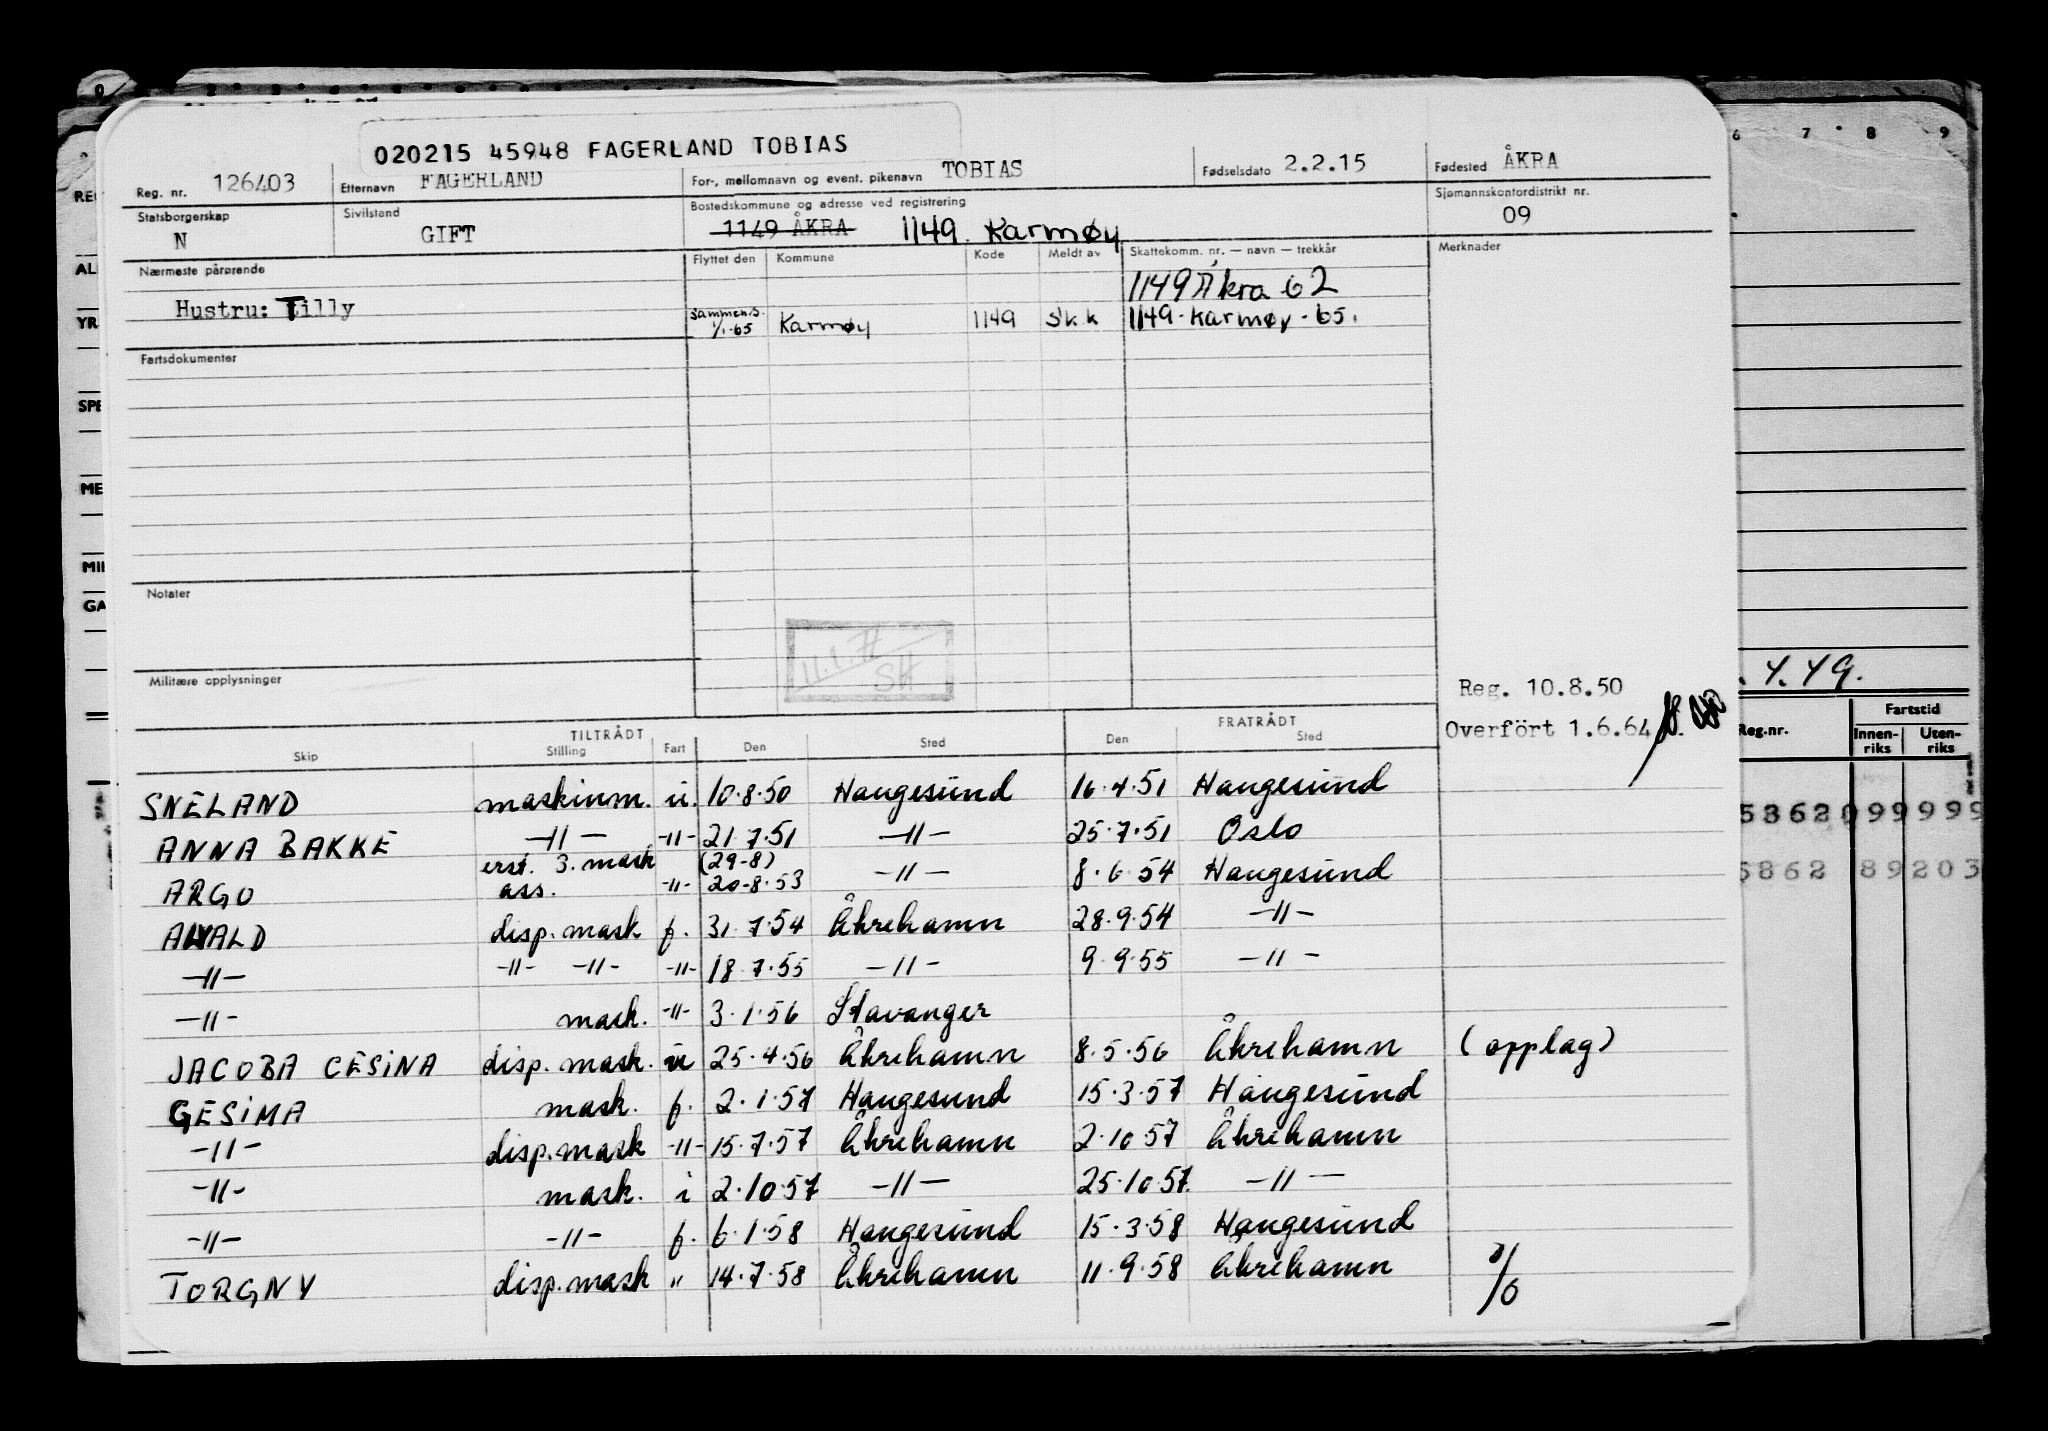 020215 45948 FAGERLAND TOBIAS
Reg. nr. 126403 Etternavn FAGERLAND For-, mellomnavn og event. pikenavn TOBIAS Fødselsdato 2.2.15 Fødested ÅKRA
Statsborgerskap N Sivilstand GIFT Bostedskommune og adresse ved registrering 1149 ÅKRA 1149. Karmøy Sjømannskontordistrikt nr. 09
Nærmeste pårørende Flyttet den Kommune Kode Meldt av Skattekomm. nr. — navn — trekkår Merknader
1149 Åkra 62
Hustru: Tilly sammens. 1/1-65 Karmøy 1149 Sk k 1149-Karmøy-65.
Fartsdokumenter
Notater
Militære opplysninger
Reg. 10.8.50
Overfört 1.6.64
TILTRÅDT FRATRÅDT
Skip Stilling Fart Den Sted Den Sted
SNELAND maskinm. u. 10.8.50 Haugesund 16.4.51 Haugesund
ANNA BAKKE -"- -"- 21.7.51 -"- 25.7.51 Oslo
ARGO erst. 3. mask ass. -"- (29-8) 20-8.53 -"- 8.6.54 Haugesund
ALVALD disp. mask f. 31.7.54 Åkrehamn 28.9.54 -"-
-"- -"- -"- -"- 18.7.55 -"- 9.9.55 -"-
-"- mask. -"- 3.1.56 Stavanger
JACOBA CESINA disp. mask. u 25.4.56 Åkrehamn 8.5.56 Åkrehamn (opplag)
GESIMA mask. f. 2.1.57 Haugesund 15.3.57 Haugesund
-"- disp. mask -"- 15.7.57 Åkrehamn 2.10.57 Åkrehamn
-"- mask. i 2.10.57 -"- 25.10.57. -"-
-"- -"- f. 6.1.58 Haugesund 15.3.58 Haugesund
TORGNY disp. mask " 14.7.58 Åkrehamn 11.9.58 Åkrehamn
6 7 8 9
AL
YR
SPE
ME
MIL
GA
.4.49.
Reg.nr. Fartstid
Innen-riks Uten-riks
5862 89203